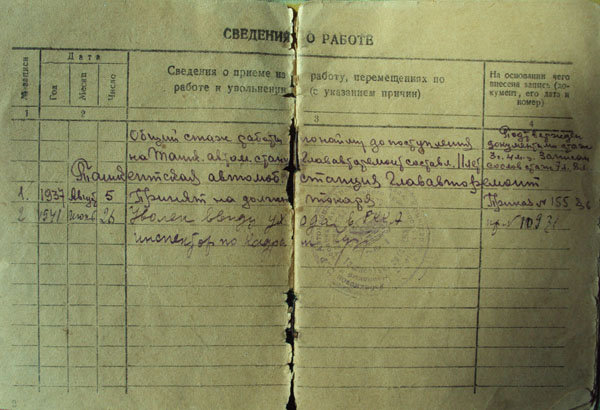 СВЕДЕНИЯ О РАБОТЕ
№ записи
Дата
Год
Месяц
Число
Сведения о приеме на работу, перемещениях по
работе и увольнении (с указанием причин)
На основании чего
внесена запись (до-
кумент, его дата и
номер)
1 2 3 4
Общий стаж работы по найму до поступления
на Ташк. автом. станц. Глававторемонт состав.
Подтвержден
документами
Записан
Ташкентская автомоб. станция Глававторемонт
1. 1937 Август 5 Принят на должн. токаря Приказ № 155
2 1941 26 Уволен ввиду ухода в РККА
инспектор по кадрам